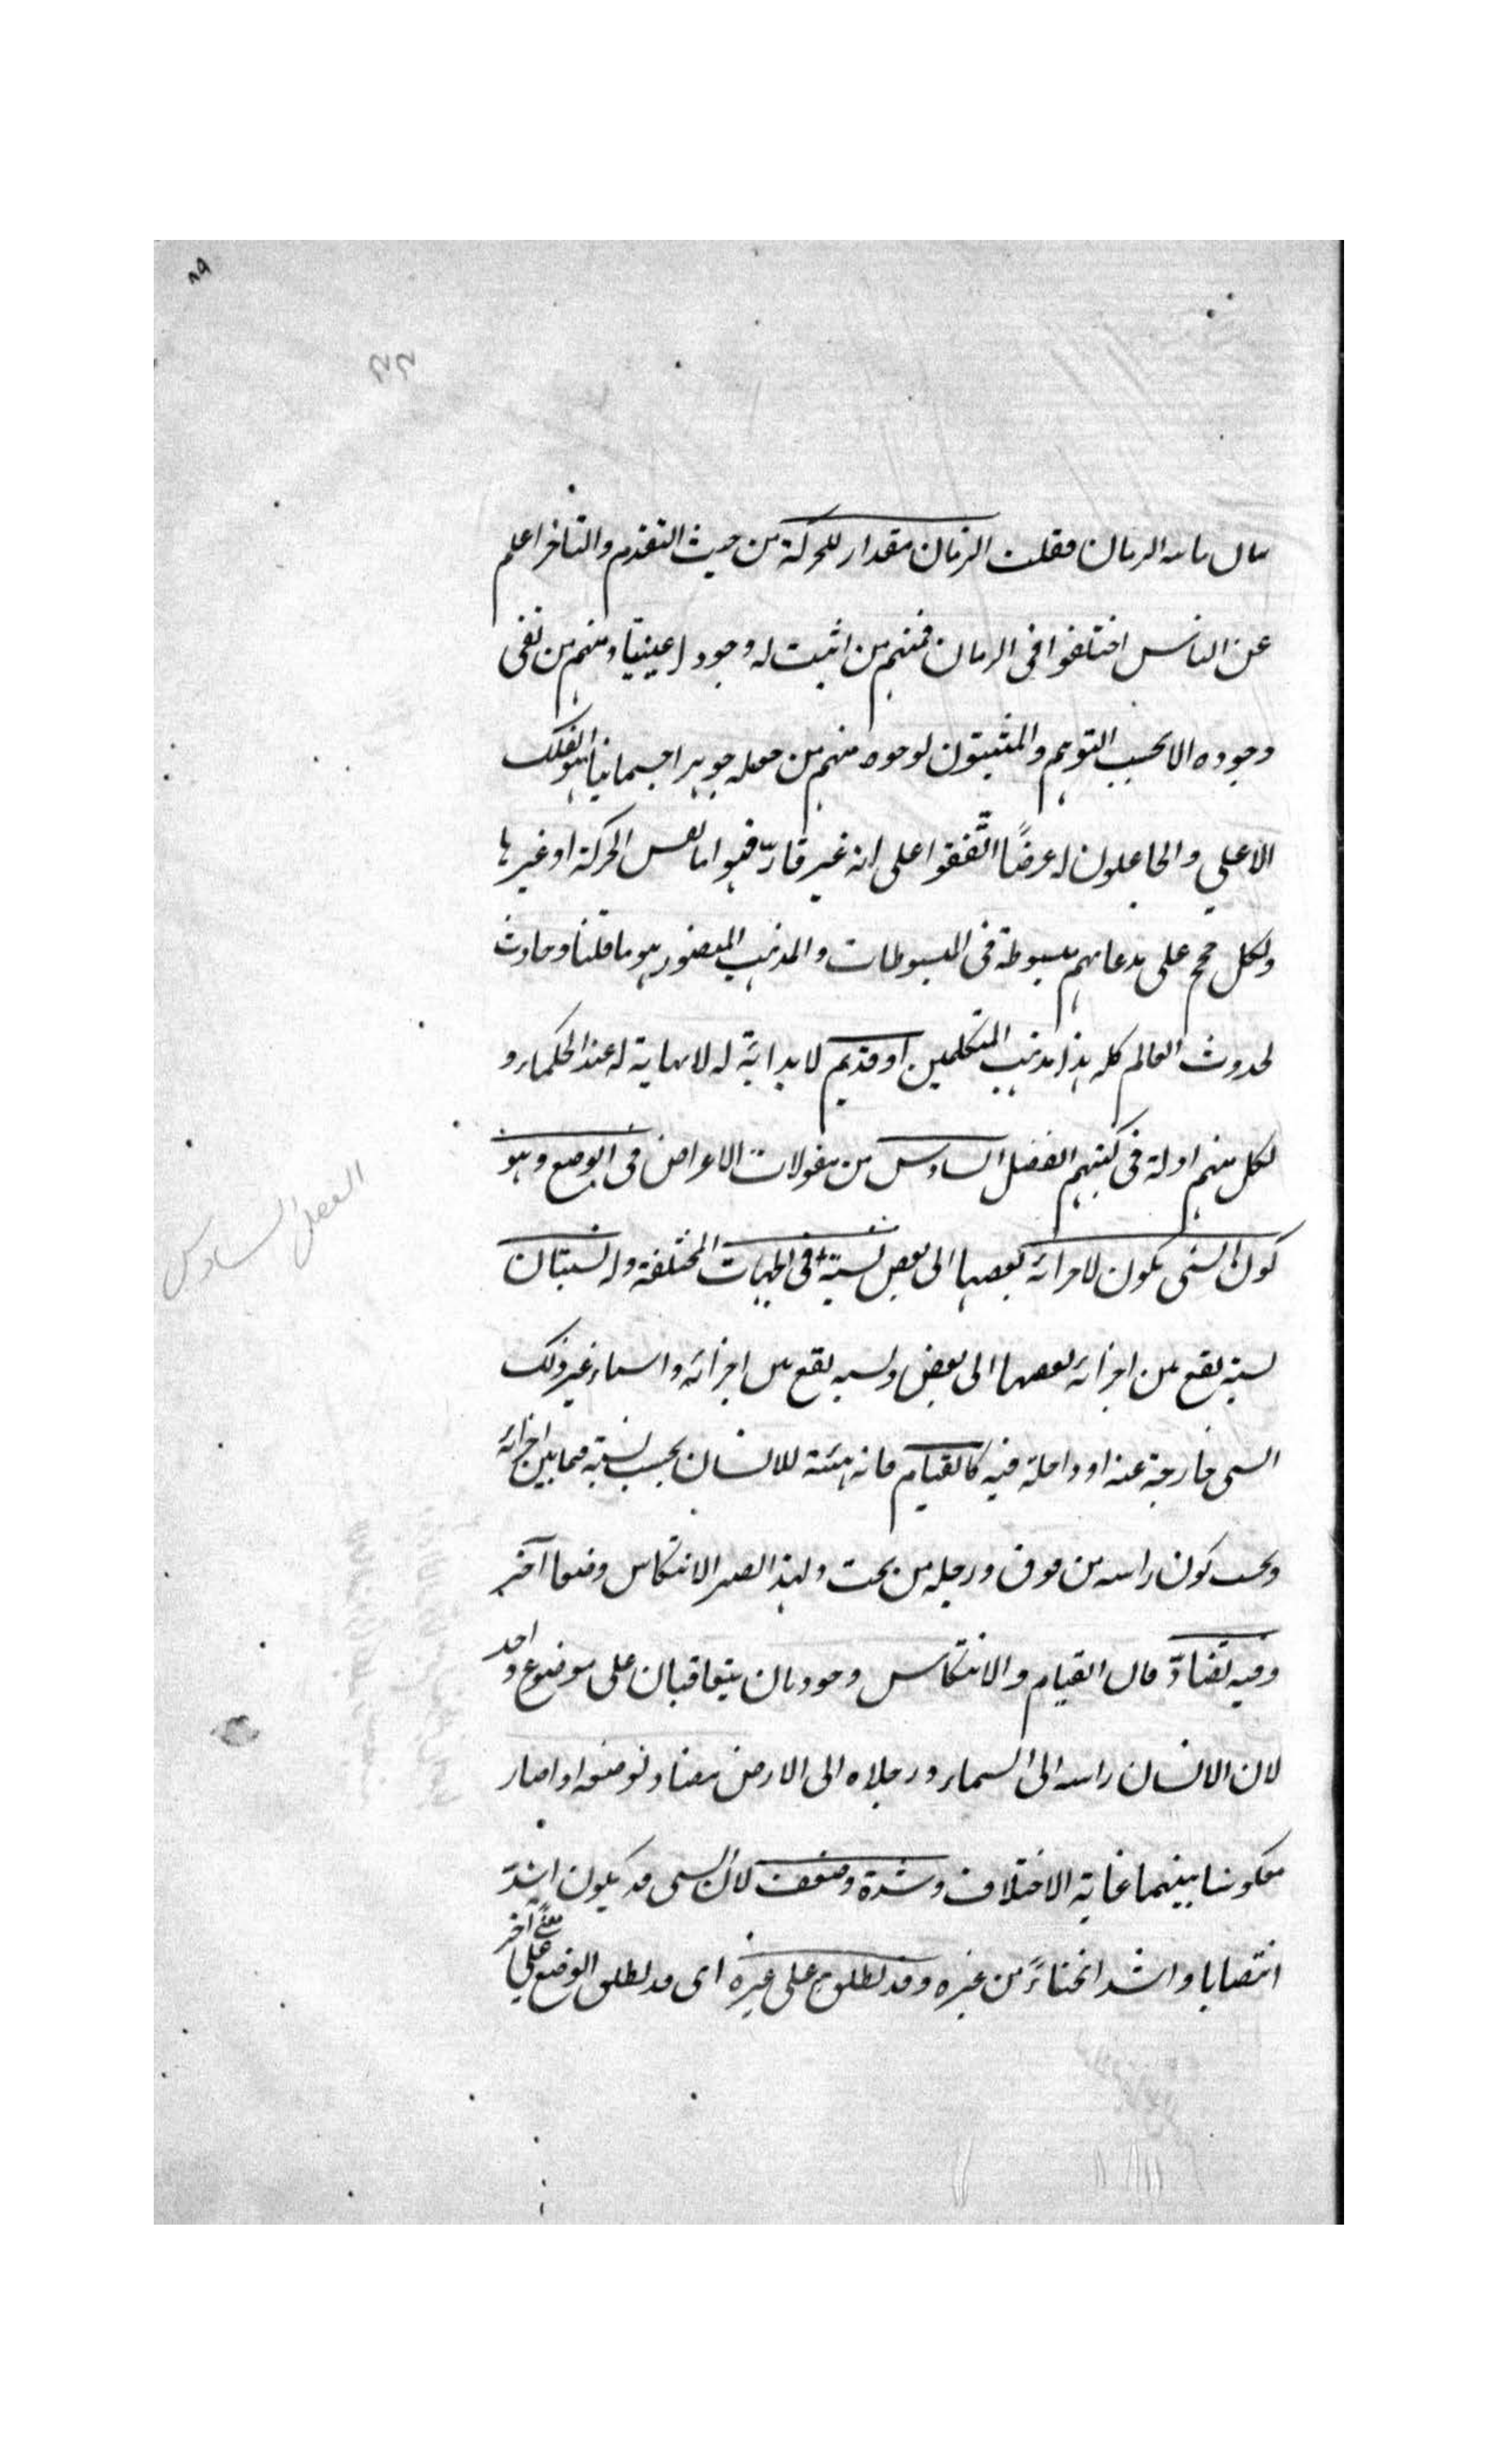 ۸۹
۲۲
سال ما الزمان فقلت الزمان مقدار للحركة من حيث التقدم والتاخر اعلم
عن الناس اختلفوا فى الزمان فمنهم من اثبت له وجودا عينيا ومنهم من نفى
وجوده الا بحسب التوهم والمثبتون لوجوده منهم من جعله جوهرا جسمانيا هو الفلك
الاعلى والجاعلون له عرضًا اتّفقوا على انه غير قارّ فهو اما نفس الحركة او غيرها
ولكل حجج على مدعاهم مبسوطة فى المبسوطات والمذهب المنصور هو ما قلنا وحادث
لحدوث العالم كله هذا مذهب المتكلمين او قديم لا بداية له لا نهاية له عند الحكماء و
لكل منهم ادلة فى كتبهم الفصل السادس من مقولات الاعراض فى الوضع وهو
كون الشى يكون لاجزائه بعضها الى بعض نسبة فى الجهات المختلفة وله نسبتان
نسبة يقع بين اجزائه بعضها الى بعض ونسبة يقع بين اجزائه واشياء غير ذلك
الشى خارجة عنه او داخلة فيه كالقيام فانه هيئة للانسان بحسب نسبة فيما بين اجزائه
وبحسب كون راسه من فوق ورجله من تحت ولهذا يصير الانتكاس وضعا آخر
وفيه تضادّ فان القيام والانتكاس وجوديان يتعاقبان على موضوع واحد
لان الانسان راسه الى السماء ورجلاه الى الارض مضاد لوضعه اذا صار
معكوسا بينهما غاية الاختلاف وشدة وضعف لان الشى قد يكون اشدّ
انتصابا واشد انحناءً من غيره وقد يطلق على غيره اى قد يطلق الوضع على معنًى آخر
الفصل السادس